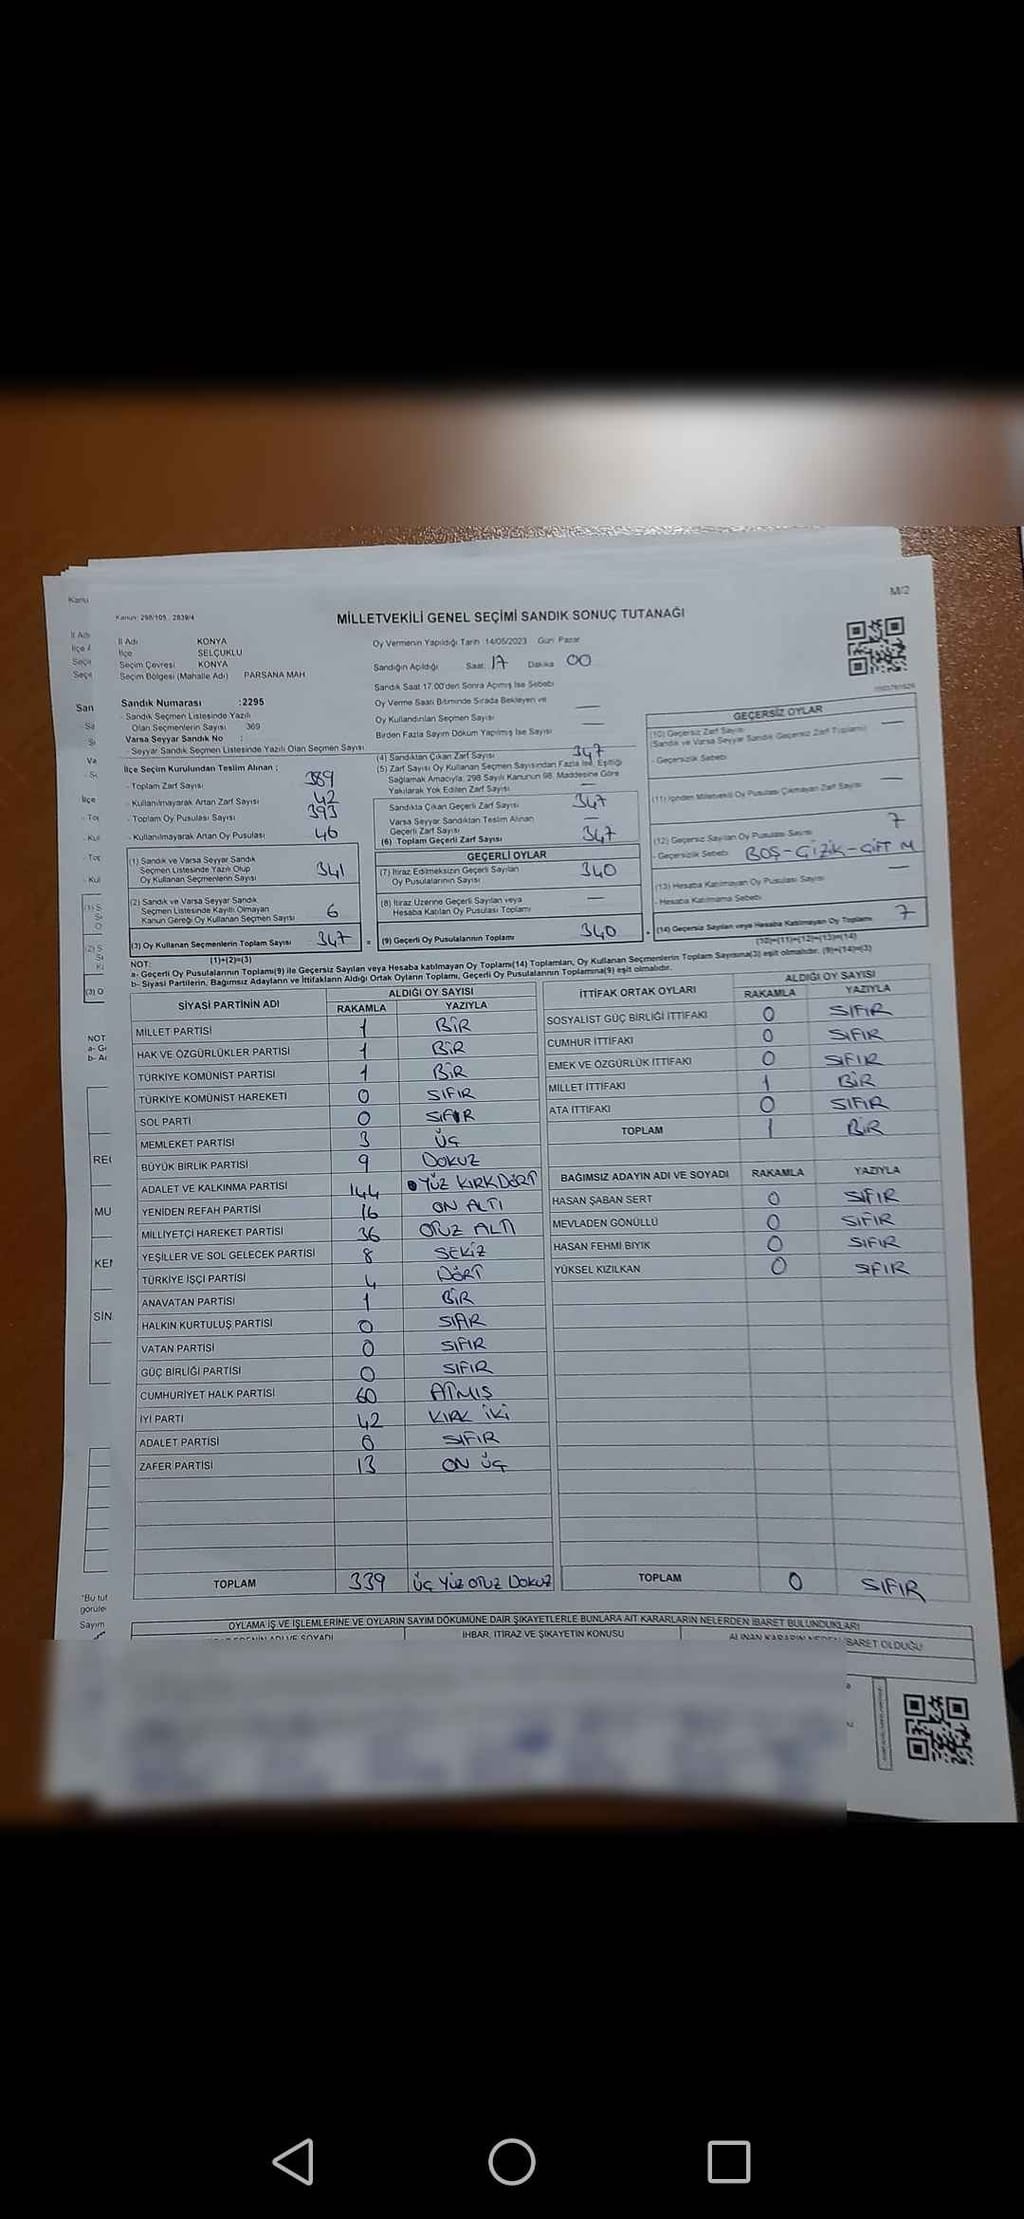 M/2
Kanun: 298/105 2839/4
MİLLETVEKİLİ GENEL SEÇİMİ SANDIK SONUÇ TUTANAĞI
İl Adı KONYA
İlçe SELÇUKLU
Seçim Çevresi KONYA
Seçim Bölgesi (Mahalle Adı) PARSANA MAH
Oy Vermenin Yapıldığı Tarih 14/05/2023 Gün Pazar
Sandığın Açıldığı Saat: 17 Dakika 00
Sandık Saat 17.00'den Sonra Açılmış İse Sebebi
Oy Verme Saati Bitiminde Sırada Bekleyen ve
Oy Kullandırılan Seçmen Sayısı —
Birden Fazla Sayım Döküm Yapılmış İse Sayısı —
Sandık Numarası :2295
- Sandık Seçmen Listesinde Yazılı
Olan Seçmenlerin Sayısı 369
Varsa Seyyar Sandık No :
- Seyyar Sandık Seçmen Listesinde Yazılı Olan Seçmen Sayısı
İlçe Seçim Kurulundan Teslim Alınan ;
- Toplam Zarf Sayısı 389
- Kullanılmayarak Artan Zarf Sayısı 42
- Toplam Oy Pusulası Sayısı 393
- Kullanılmayarak Artan Oy Pusulası 46
(1) Sandık ve Varsa Seyyar Sandık
Seçmen Listesinde Yazılı Olup
Oy Kullanan Seçmenlerin Sayısı 341
(2) Sandık ve Varsa Seyyar Sandık
Seçmen Listesinde Kayıtlı Olmayan
Kanun Gereği Oy Kullanan Seçmen Sayısı 6
(3) Oy Kullanan Seçmenlerin Toplam Sayısı 347
(1)+(2)=(3)
(4) Sandıktan Çıkan Zarf Sayısı 347
(5) Zarf Sayısı Oy Kullanan Seçmen Sayısından Fazla İse, Eşitliği
Sağlamak Amacıyla, 298 Sayılı Kanunun 98. Maddesine Göre
Yakılarak Yok Edilen Zarf Sayısı —
Sandıkta Çıkan Geçerli Zarf Sayısı 347
Varsa Seyyar Sandıktan Teslim Alınan
Geçerli Zarf Sayısı —
(6) Toplam Geçerli Zarf Sayısı 347
GEÇERLİ OYLAR
(7) İtiraz Edilmeksizin Geçerli Sayılan
Oy Pusulalarının Sayısı 340
(8) İtiraz Üzerine Geçerli Sayılan veya
Hesaba Katılan Oy Pusulası Toplamı —
= (9) Geçerli Oy Pusulalarının Toplamı 340
GEÇERSİZ OYLAR
(10) Geçersiz Zarf Sayısı —
(Sandık ve Varsa Seyyar Sandık Geçersiz Zarf Toplamı)
- Geçersizlik Sebebi
(11) İçinden Milletvekili Oy Pusulası Çıkmayan Zarf Sayısı —
(12) Geçersiz Sayılan Oy Pusulası Sayısı 7
- Geçersizlik Sebebi BOŞ-ÇİZİK-ÇİFT M
(13) Hesaba Katılmayan Oy Pusulası Sayısı —
- Hesaba Katılmama Sebebi
+ (14) Geçersiz Sayılan veya Hesaba Katılmayan Oy Toplamı 7
(10)+(11)+(12)+(13)=(14)
NOT:
a- Geçerli Oy Pusulalarının Toplamı(9) ile Geçersiz Sayılan veya Hesaba katılmayan Oy Toplamı(14) Toplamları, Oy Kullanan Seçmenlerin Toplam Sayısına(3) eşit olmalıdır. (9)+(14)=(3)
b- Siyasi Partilerin, Bağımsız Adayların ve İttifakların Aldığı Ortak Oyların Toplamı, Geçerli Oy Pusulalarının Toplamına(9) eşit olmalıdır.
SİYASİ PARTİNİN ADI ALDIĞI OY SAYISI
RAKAMLA YAZIYLA
MİLLET PARTİSİ 1 BİR
HAK VE ÖZGÜRLÜKLER PARTİSİ 1 BİR
TÜRKİYE KOMÜNİST PARTİSİ 1 BİR
TÜRKİYE KOMÜNİST HAREKETİ 0 SIFIR
SOL PARTİ 0 SIFIR
MEMLEKET PARTİSİ 3 ÜÇ
BÜYÜK BİRLİK PARTİSİ 9 DOKUZ
ADALET VE KALKINMA PARTİSİ 144 YÜZ KIRK DÖRT
YENİDEN REFAH PARTİSİ 16 ON ALTI
MİLLİYETÇİ HAREKET PARTİSİ 36 OTUZ ALTI
YEŞİLLER VE SOL GELECEK PARTİSİ 8 SEKİZ
TÜRKİYE İŞÇİ PARTİSİ 4 DÖRT
ANAVATAN PARTİSİ 1 BİR
HALKIN KURTULUŞ PARTİSİ 0 SIFIR
VATAN PARTİSİ 0 SIFIR
GÜÇ BİRLİĞİ PARTİSİ 0 SIFIR
CUMHURİYET HALK PARTİSİ 60 ATMIŞ
İYİ PARTİ 42 KIRK İKİ
ADALET PARTİSİ 0 SIFIR
ZAFER PARTİSİ 13 ON ÜÇ
TOPLAM 339 ÜÇ YÜZ OTUZ DOKUZ
İTTİFAK ORTAK OYLARI ALDIĞI OY SAYISI
RAKAMLA YAZIYLA
SOSYALİST GÜÇ BİRLİĞİ İTTİFAKI 0 SIFIR
CUMHUR İTTİFAKI 0 SIFIR
EMEK VE ÖZGÜRLÜK İTTİFAKI 0 SIFIR
MİLLET İTTİFAKI 1 BİR
ATA İTTİFAKI 0 SIFIR
TOPLAM 1 BİR
BAĞIMSIZ ADAYIN ADI VE SOYADI RAKAMLA YAZIYLA
HASAN ŞABAN SERT 0 SIFIR
MEVLADEN GÖNÜLLÜ 0 SIFIR
HASAN FEHMİ BIYIK 0 SIFIR
YÜKSEL KIZILKAN 0 SIFIR
TOPLAM 0 SIFIR
OYLAMA İŞ VE İŞLEMLERİNE VE OYLARIN SAYIM DÖKÜMÜNE DAİR ŞİKAYETLERLE BUNLARA AİT KARARLARIN NELERDEN İBARET BULUNDUKLARI
ADI VE SOYADI İHBAR, İTİRAZ VE ŞİKAYETİN KONUSU ALINAN KARARIN NEDEN İBARET OLDUĞU